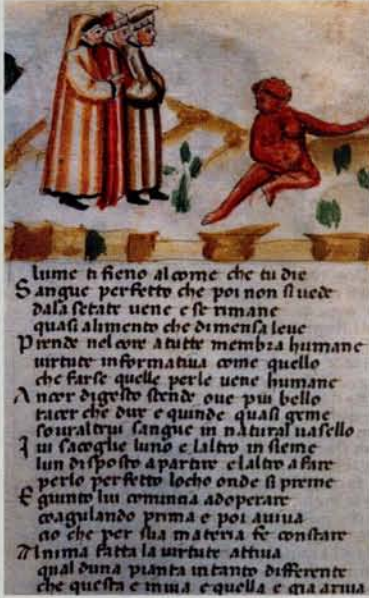 lume ti fieno al come che tu die
Sangue perfetto che poi non si vede
dala setate uene e se rimane
quasi alimento che di mensa leue
Prende nel core a tutte membra humane
uirtute informatiua come quello
che farse quelle per le uene humane
Ancor digesto scende oue piu bello
tacer che dire e quinde quasi geme
souraltrui sangue in natural uasello
Iui sacoglie luno e laltro in sieme
lun disposto a patire e laltro a fare
per lo perfetto locho onde si preme
E giunto lui comincia adoperare
coagulando prima e poi auiua
cio che per sua materia fe constare
Anima fatta la uirtute attiua
qual duna pianta in tanto differente
che questa e in uia e quella e gia ariua